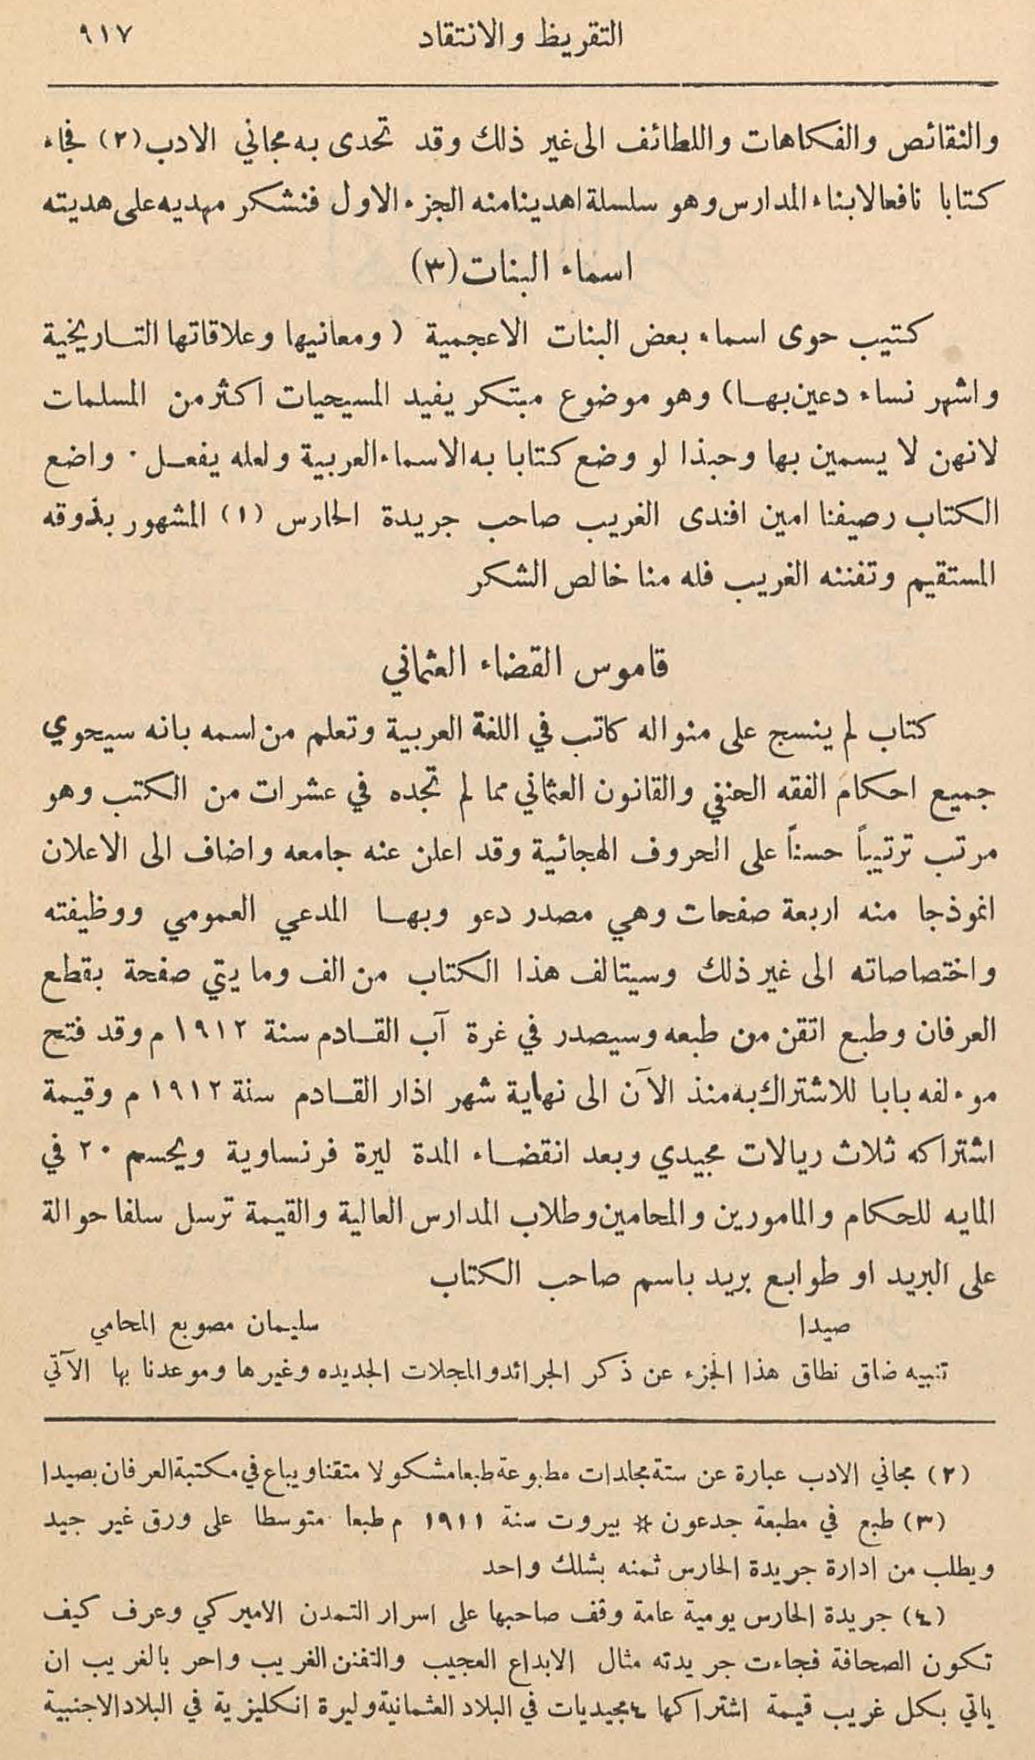 التقريظ والانتقاد ٩١٧
والنقائص والفكاهات واللطائف الى غير ذلك وقد تحدى به مجاني الادب (٢) فجاء
كتابا نافعا لابناء المدارس وهو سلسلة اهدينا منه الجزء الاول فنشكر مهديه على هديته
اسماء البنات (٣)
كتيب حوى اسماء بعض البنات الاعجمية ( ومعانيها وعلاقاتها التاريخية
واشهر نساء دعين بها) وهو موضوع مبتكر يفيد المسيحيات اكثر من المسلمات
لانهن لا يسمين بها وحبذا لو وضع كتابا به الاسماء العربية ولعله يفعل ٠ واضع
الكتاب رصيفنا امين افندى الغريب صاحب جريدة الحارس (١) المشهور بذوقه
المستقيم وتفننه الغريب فله منا خالص الشكر
قاموس القضاء العثماني
كتاب لم ينسج على منواله كاتب في اللغة العربية وتعلم من اسمه بانه سيحوي
جميع احكام الفقه الحنفي والقانون العثماني مما لم تجده في عشرات من الكتب وهو
مرتب ترتيباً حسناً على الحروف الهجائية وقد اعلن عنه جامعه واضاف الى الاعلان
انموذجا منه اربعة صفحات وهي مصدر دعو وبها المدعي العمومي ووظيفته
واختصاصاته الى غير ذلك وسيتالف هذا الكتاب من الف وما يتي صفحة بقطع
العرفان وطبع اتقن من طبعه وسيصدر في غرة آب القادم سنة ١٩١٢ م وقد فتح
موءلفه بابا للاشتراك به منذ الآن الى نهاية شهر اذار القادم سنة ١٩١٢ م وقيمة
اشتراكه ثلاث ريالات مجيدي وبعد انقضاء المدة ليرة فرنساوية ويحسم ٢٠ في
المايه للحكام والمامورين والمحامين وطلاب المدارس العالية والقيمة ترسل سلفا حوالة
على البريد او طوابع بريد باسم صاحب الكتاب
صيدا سليمان مصوبع المحامي
تنبيه ضاق نطاق هذا الجزء عن ذكر الجرائد والمجلات الجديده وغيرها وموعدنا بها الآتي
(٢) مجاني الادب عبارة عن ستة مجلدات مطبوعة طبعا مشكولا متقنا ويباع في مكتبة العرفان بصيدا
(٣) طبع في مطبعة جدعون * بيروت سنة ١٩١١ م طبعا متوسطا على ورق غير جيد
ويطلب من ادارة جريدة الحارس ثمنه بشلك واحد
(٤) جريدة الحارس يومية عامة وقف صاحبها على اسرار التمدن الاميركي وعرف كيف
تكون الصحافة فجاءت جريدته مثال الابداع العجيب والتفنن الغريب واحر بالغريب ان
ياتي بكل غريب قيمة اشتراكها ٤ مجيديات في البلاد العثمانية وليرة انكليزية في البلاد الاجنبية